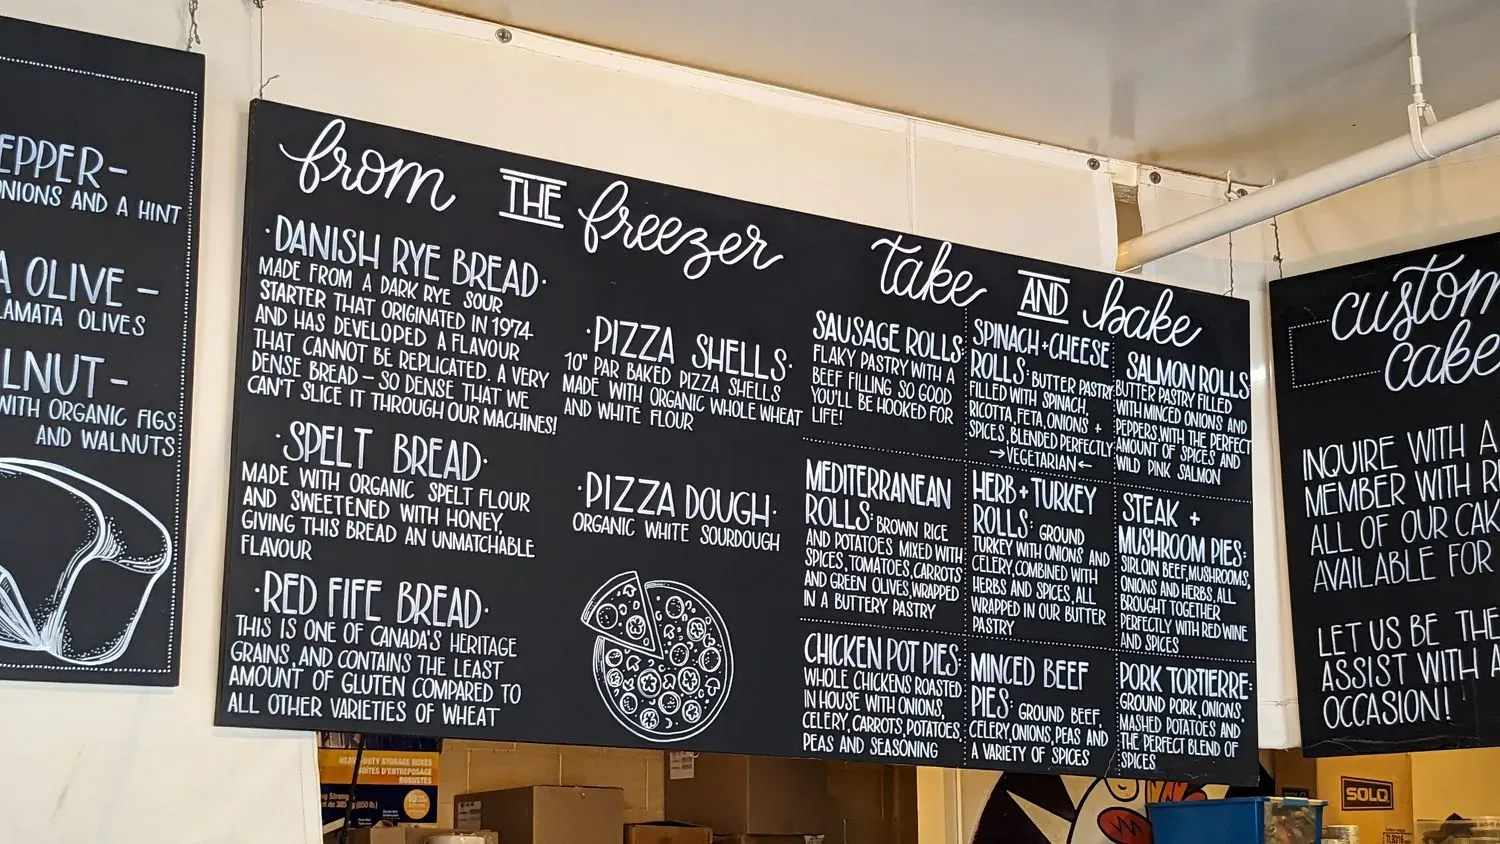 EPPER-
ONIONS AND A HINT
A OLIVE -
LAMATA OLIVES
LNUT-
WITH ORGANIC FIGS
AND WALNUTS
from THE freezer
·DANISH RYE BREAD·
MADE FROM A DARK RYE SOUR
STARTER THAT ORIGINATED IN 1974
AND HAS DEVELOPED A FLAVOUR
THAT CANNOT BE REPLICATED. A VERY
DENSE BREAD - SO DENSE THAT WE
CAN'T SLICE IT THROUGH OUR MACHINES!
·SPELT BREAD·
MADE WITH ORGANIC SPELT FLOUR
AND SWEETENED WITH HONEY,
GIVING THIS BREAD AN UNMATCHABLE
FLAVOUR
·RED FIFE BREAD·
THIS IS ONE OF CANADA'S HERITAGE
GRAINS, AND CONTAINS THE LEAST
AMOUNT OF GLUTEN COMPARED TO
ALL OTHER VARIETIES OF WHEAT
·PIZZA SHELLS·
10" PAR BAKED PIZZA SHELLS
MADE WITH ORGANIC WHOLE WHEAT
AND WHITE FLOUR
·PIZZA DOUGH·
ORGANIC WHITE SOURDOUGH
take AND bake
SAUSAGE ROLLS
FLAKY PASTRY WITH A
BEEF FILLING SO GOOD
YOU'LL BE HOOKED FOR
LIFE!
SPINACH+CHEESE
ROLLS: BUTTER PASTRY
FILLED WITH SPINACH,
RICOTTA, FETA, ONIONS +
SPICES, BLENDED PERFECTLY
→VEGETARIAN←
SALMON ROLLS:
BUTTER PASTRY FILLED
WITH MINCED ONIONS AND
PEPPERS, WITH THE PERFECT
AMOUNT OF SPICES AND
WILD PINK SALMON
MEDITERRANEAN
ROLLS: BROWN RICE
AND POTATOES MIXED WITH
SPICES, TOMATOES, CARROTS
AND GREEN OLIVES, WRAPPED
IN A BUTTERY PASTRY
HERB+TURKEY
ROLLS: GROUND
TURKEY WITH ONIONS AND
CELERY, COMBINED WITH
HERBS AND SPICES, ALL
WRAPPED IN OUR BUTTER
PASTRY
STEAK +
MUSHROOM PIES:
SIRLOIN BEEF, MUSHROOMS,
ONIONS AND HERBS, ALL
BROUGHT TOGETHER
PERFECTLY WITH RED WINE
AND SPICES
CHICKEN POT PIES:
WHOLE CHICKENS ROASTED
IN HOUSE WITH ONIONS,
CELERY, CARROTS, POTATOES,
PEAS AND SEASONING
MINCED BEEF
PIES: GROUND BEEF,
CELERY, ONIONS, PEAS AND
A VARIETY OF SPICES
PORK TORTIERRE:
GROUND PORK, ONIONS,
MASHED POTATOES AND
THE PERFECT BLEND OF
SPICES
custom
cake
INQUIRE WITH A
MEMBER WITH
ALL OF OUR CAK
AVAILABLE FOR
LET US BE THE
ASSIST WITH A
OCCASION!
HEAVY-DUTY STORAGE BOXES
BOÎTES D'ENTREPOSAGE
ROBUSTES
SOLO